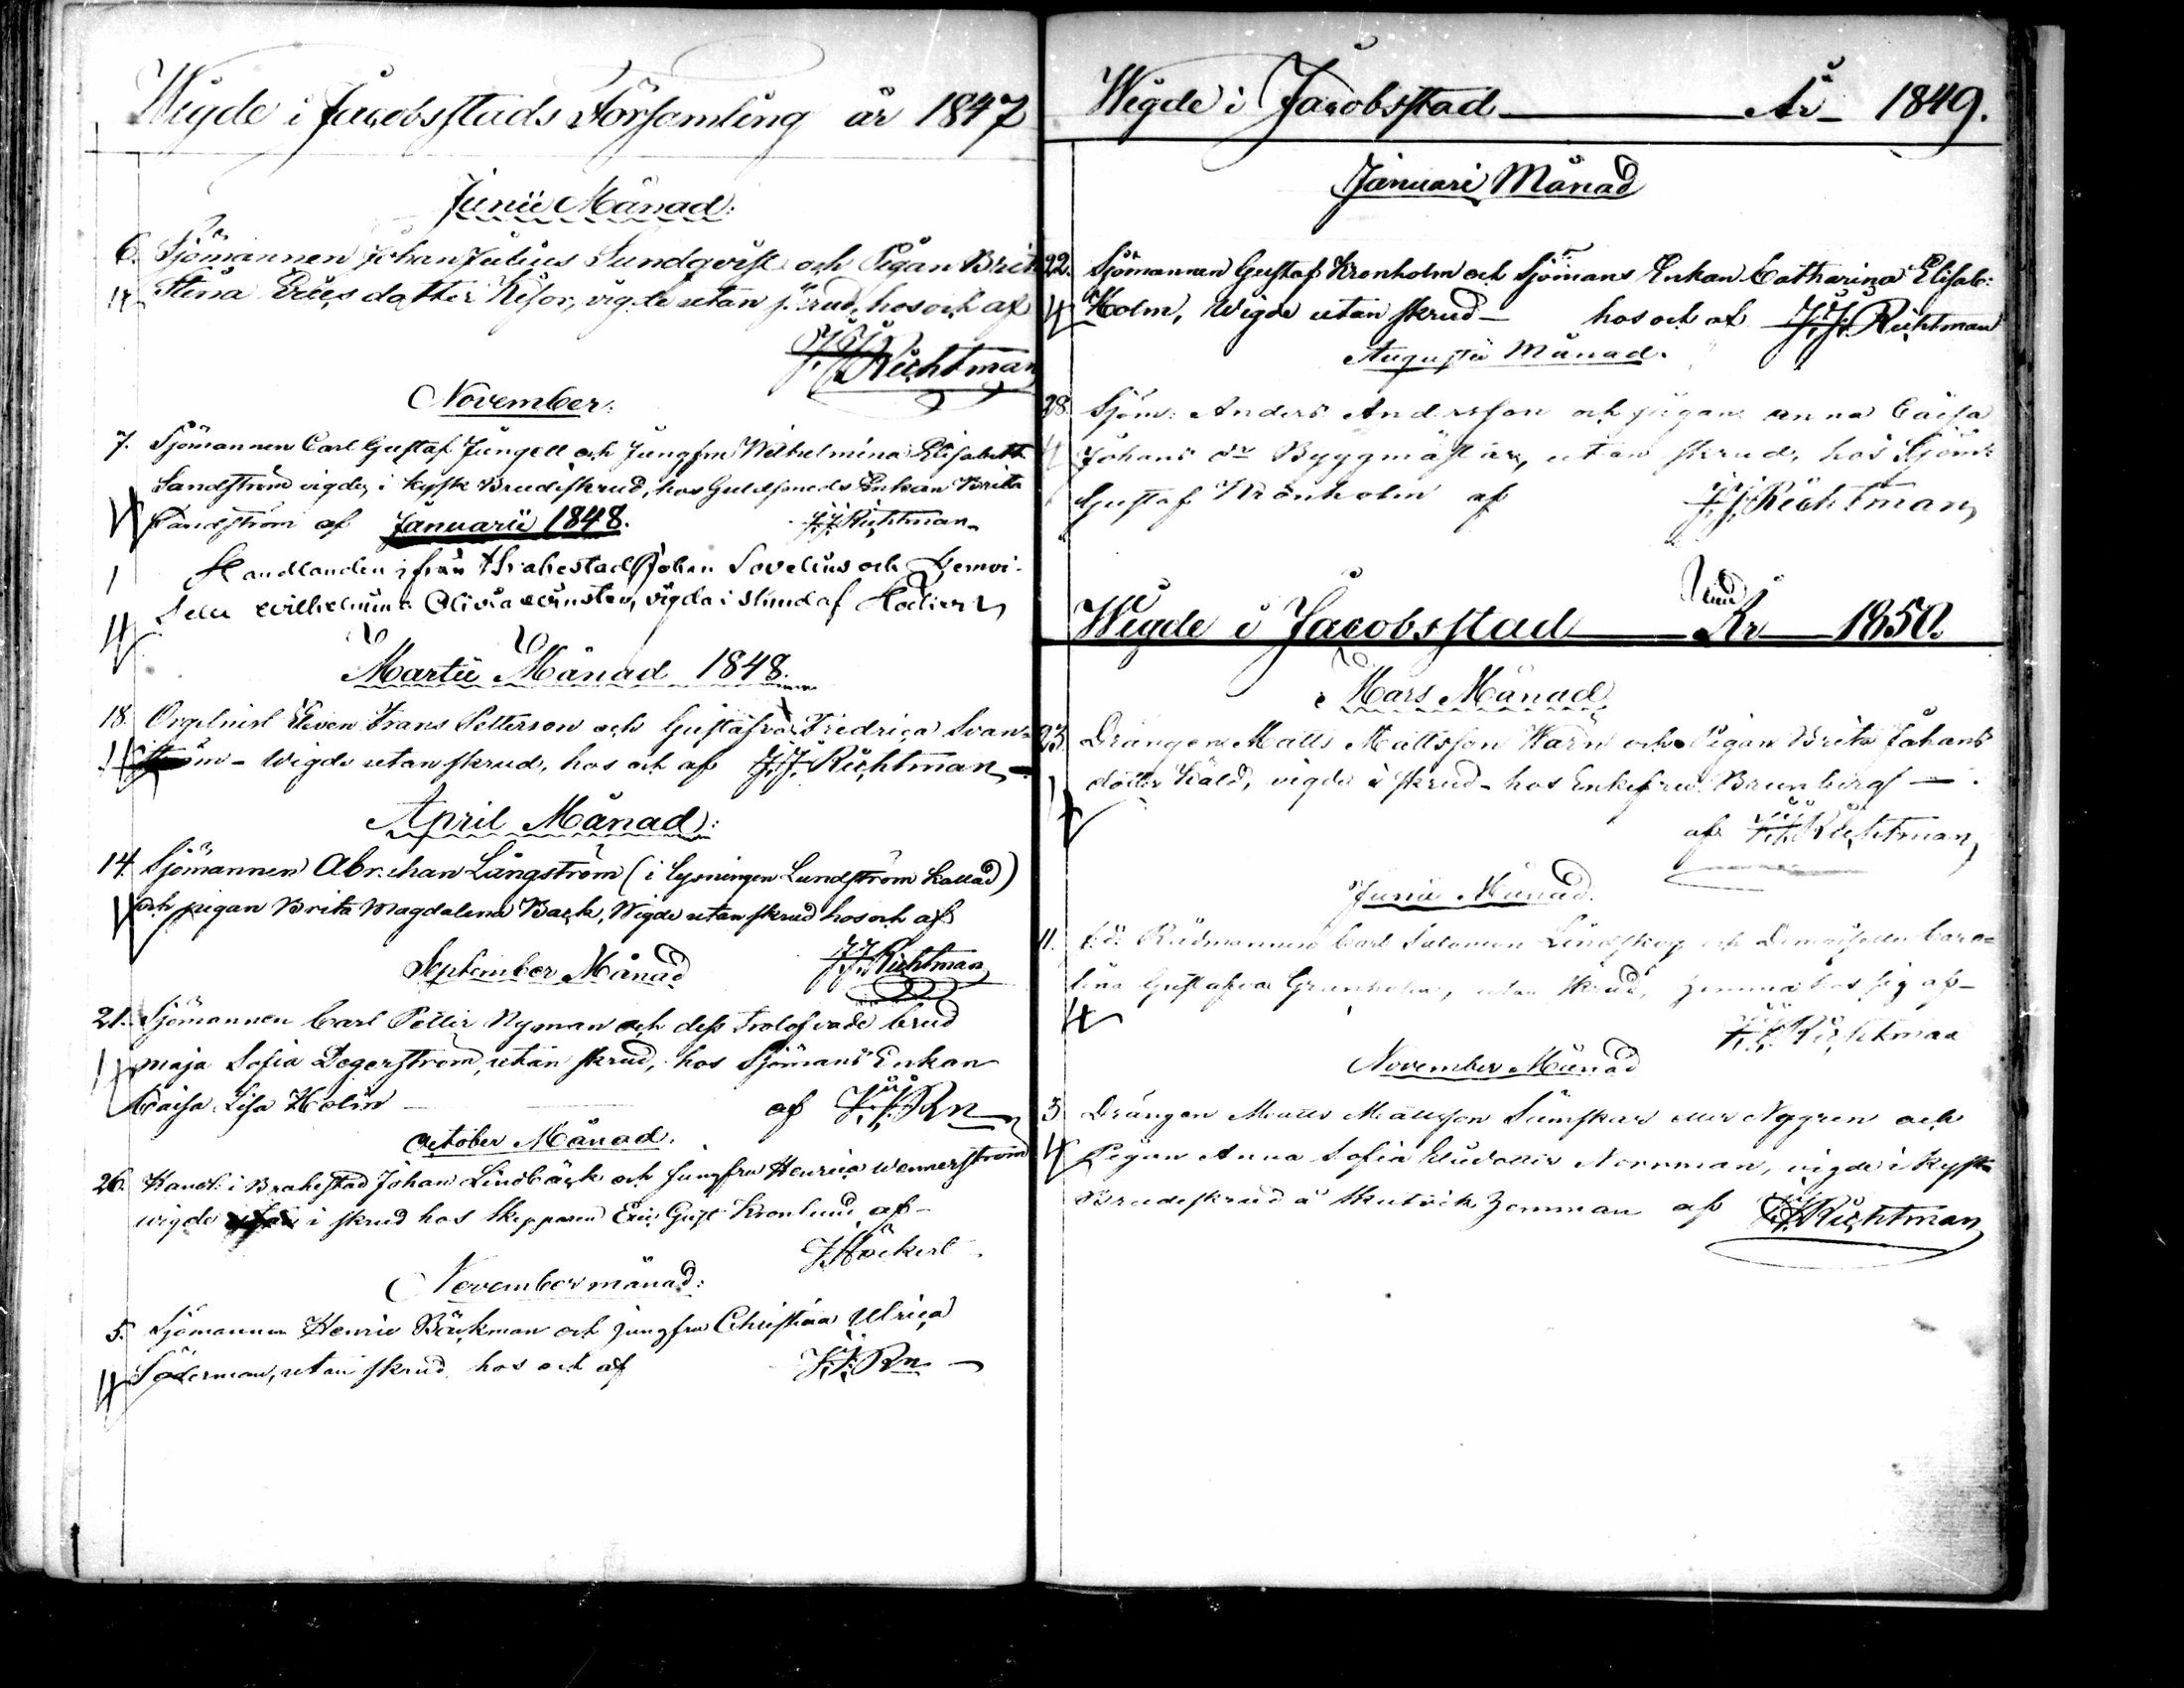 Wigde i Jacobsstads Församling år 1847
Junii Månad:
6. Sjömannen Johan Julius Sundqvist och Pigan Brita
Stina Ericsdotter Kisor, vigde utan skrud, hos och af
J. J. Richtman
November:
7. Sjömannen Carl Gustaf Jungell och Jungfrun Wilhelmina Elisabeth
Sandström vigde, i kysk Brudeskrud, hos Guldsmeds Enkan Brita
Sandström af Januarii 1848. J. J. Richtman
1 Handlanden ifrån Brahestad Johan Sovelius och Demoi-
selle Wilhelmina Olivia, vigda i skrud af
Martii Månad 1848.
18. Orgelnist Eleven Frans Petterson och Gustafva Fredrica Svan-
ström - wigde utan skrud, hos och af J. J. Richtman
April Månad:
14. Sjömannen Abraham Långström (i lysningen Lundström kallad)
och pigan Brita Magdalena Back, Wigde utan skrud hos och af
September Månad J. J. Richtman
21. Sjömannen Carl Petter Nyman och dess Trolofvade brud
Maja Sofia Degerström, utan skrud, hos Sjömans Enkan
Caisa Lisa Holm af J. J. Rn
October Månad.
26. Handl: i Brahestad Johan Lindbäck och Jungfru Henrica Wennerström
wigde i skrud hos Skepparen Eric Gust Kronlund af
J. Höckert
November månad:
5. Sjömannen Henric Bäckman och jungfru Christina Ulrica
Söderman, utan skrud hos och af J. J. Rn
Wigde i Jacobsstad År 1849.
Januari Månad
22. Sjömannen Gustaf Kronholm och Sjömans Enkan Catharina Elisab:
Holm, Wigde utan skrud hos och af J. J. Richtman
Augustii Månad.
28. Sjöm: Anders Andersson och pigan Anna Caisa
Johans dr Byggmästar, utan skrud, hos Sjöm:
Gustaf Kronholm af J. J. Richtman
Wigde i Jacobsstad År 1850.
Mars Månad
23. Drängen Matts Mattsson Warn och Pigan Brita Johans
dotter Käld, vigde i skrud hos Enkefru Braunberg
af J. J. Richtman
Junii Månad.
11. f. d. Rådmannen Carl Salomon Lindskog och Demoiselle Caro-
lina Gustafva Grönholm, utan skrud, hemma hos sig af
J. J. Richtman
November Månad
3. Drängen Matts Mattsson Sämskar eller Nygren och
Pigan Anna Sofia Norrman, vigde i kysk
Brudeskrud å hemman af J. J. Richtman